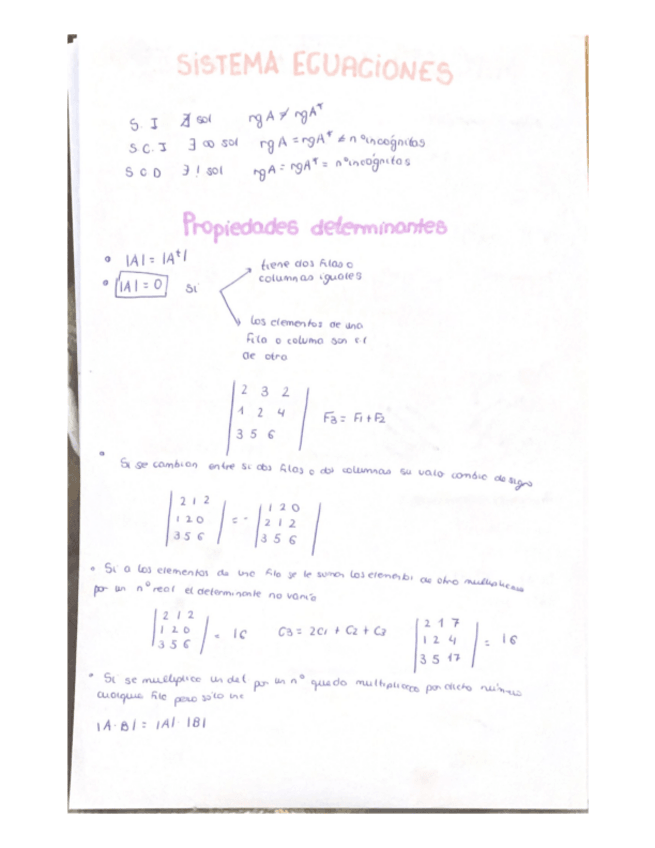 SISTEMA ECUACIONES
S. I ∄ sol rgA ≠ rgA*
S C. I ∃ ∞ sol rgA = rgA* ≠ nº incógnitas
S C D ∃! sol rgA = rgA* = nº incógnitas
Propiedades determinantes
• |A| = |Aᵗ|
• |A| = 0 si
tiene dos filas o
columnas iguales
los elementos de una
fila o columa son c.l
de otra
2 3 2
1 2 4
3 5 6
F3 = F1 + F2
• Si se cambian entre si dos filas o dos columnas su valo cambia de signo
2 1 2
1 2 0
3 5 6
= -
1 2 0
2 1 2
3 5 6
• Si a los elementos de una fila se le suman los elementos de otra multiplicados
por un nº real el determinante no varía
2 1 2
1 2 0
3 5 6
= 16
C3 = 2C1 + C2 + C3
2 1 7
1 2 4
3 5 17
= 16
• Si se multiplica un det por un nº queda multiplicado por dicho número
cualquier fila pero solo una
|A·B| = |A|·|B|